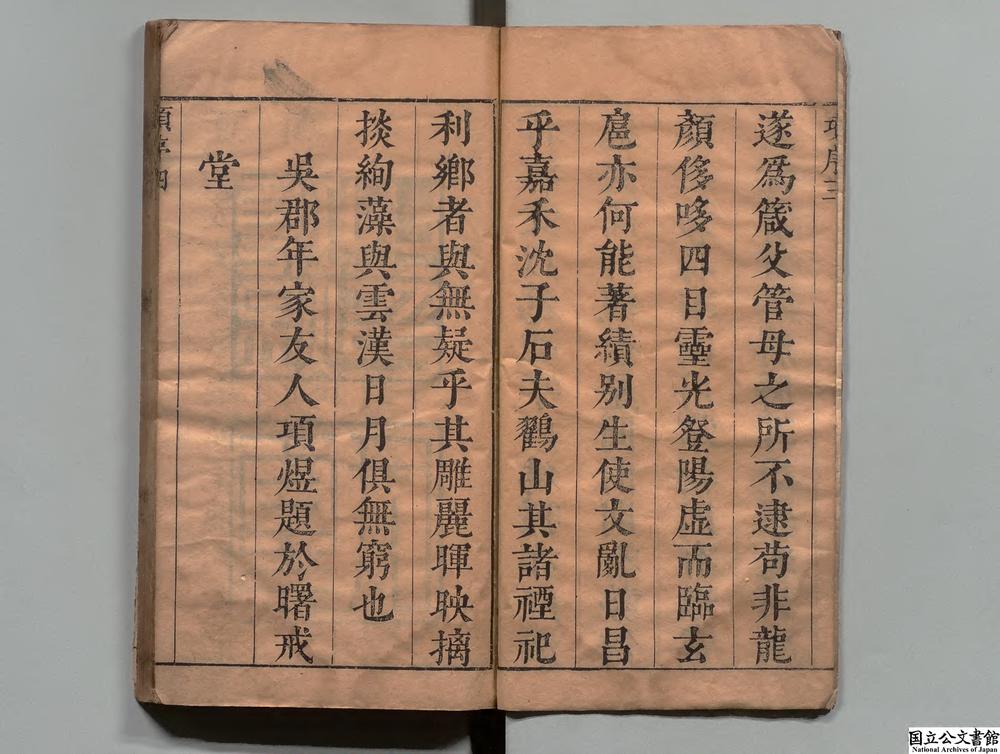 遂爲箴父管母之所不逮苟非龍
顏侈哆四目靈光登陽虛而臨玄
扈亦何能著績别生使文亂日昌
乎嘉禾沈子石夫鸛山其諸禋祀
利鄉者與無疑乎其雕麗暉映摛
掞絢藻與雲漢日月俱無窮也
吳郡年家友人項煜題於曙戒
堂
項序四
国立公文書館
National Archives of Japan